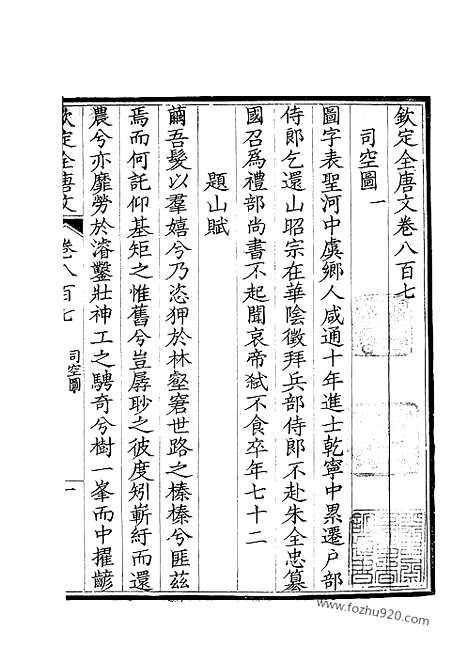 欽定全唐文卷八百七
司空圖一
圖字表聖河中虞鄉人咸通十年進士乾寧中累遷戶部
侍郎乞還山昭宗在華陰徵拜兵部侍郎不赴朱全忠篡
國召為禮部尚書不起聞哀帝弒不食卒年七十二
題山賦
繭吾髮以羣嬉兮乃恣狎於林壑窘世路之榛榛兮匪茲
焉而何託仰基矩之惟舊兮豈孱眇之彼度矧嶄紆而還
農兮亦靡勞於濬鑿壯神工之騁奇兮樹一峯而中擢齴
欽定全唐文 卷八百七 司空圖 一
www.fozhu920.com